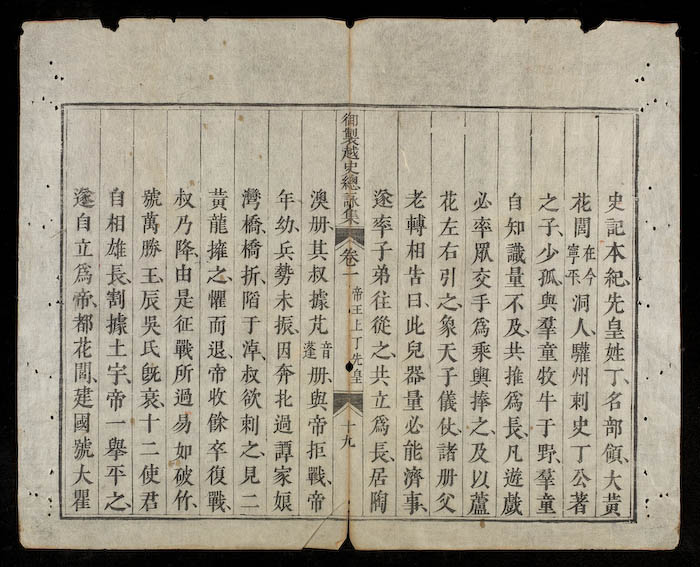 史記本紀先皇姓丁、名部領、大黃
花閭在今寧平洞人、驩州刺史丁公著
之子、少孤、與羣童牧牛于野、羣童
自知識量不及、共推爲長、凡遊戲
必率眾交手爲乘輿捧之、及以蘆
花左右引之、象天子儀仗、諸册父
老轉相告曰、此兒器量必能濟事、
遂率子弟往從之、共立爲長、居陶
御製越史總詠集 卷一 帝王上丁先皇 十九
澳册、其叔據芃音蓬册、與帝拒戰、帝
年幼、兵勢未振、因奔北過譚家娘
灣橋、橋折、陷于淖、叔欲刺之、見二
黃龍擁之、懼而退、帝收餘卒復戰、
叔乃降、由是征戰所過、易如破竹、
號萬勝王、辰吳氏旣衰、十二使君
自相雄長、割據土宇、帝一舉平之、
遂自立爲帝、都花閭、建國號大瞿